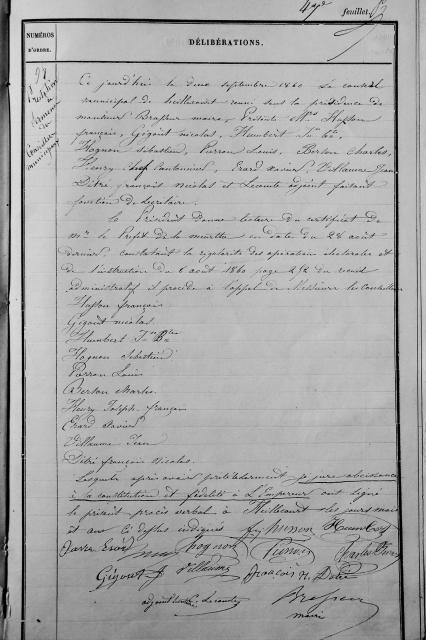 47e feuillet.
NUMÉROS D'ORDRE.
DÉLIBÉRATIONS.
98
Prestation de serment
municipaux
Ce jourd'hui le deux septembre 1860 Le conseil
municipal de reuni sous la présidence de
monsieur Brasseur maire, Présents Mrs Husson
françois, Gigout nicolas, Humbert Jn Bte,
Hognon Sébastien, Pierron Louis, Berton Charles,
Henry chef Cantonnier, Erard Xavier, Villaume Jean
Détré françois nicolas et Lecomte adjoint faisant
fonction de Secrétaire.
Le Président donne lecture du certificat de
mr le Prefet de la meurthe en date du 28 août
dernier, constatant la régularité des opérations électorales et
de l'instruction du 6 août 1860 page 252 du recueil
administratif il procède à l'appel de Messieurs les conseillers
Husson françois
Gigout nicolas
Humbert Jn Bte
Hognon Sébastien
Pierron Louis
Berton charles
Henry Joseph françois
Erard Xavier
Villaume Jean
Détré françois Nicolas
Lesquels après avoir prêté serment je jure obeissance
à la constitution et fidélité à L'Empereur ont signé
le présent procès verbal à les jours mois
et an ci dessus indiqués
Husson Humbert
Hognon Pierron
Gigout Villaume françois N. Détré
adjoint Lecomte
Brasseur
maire